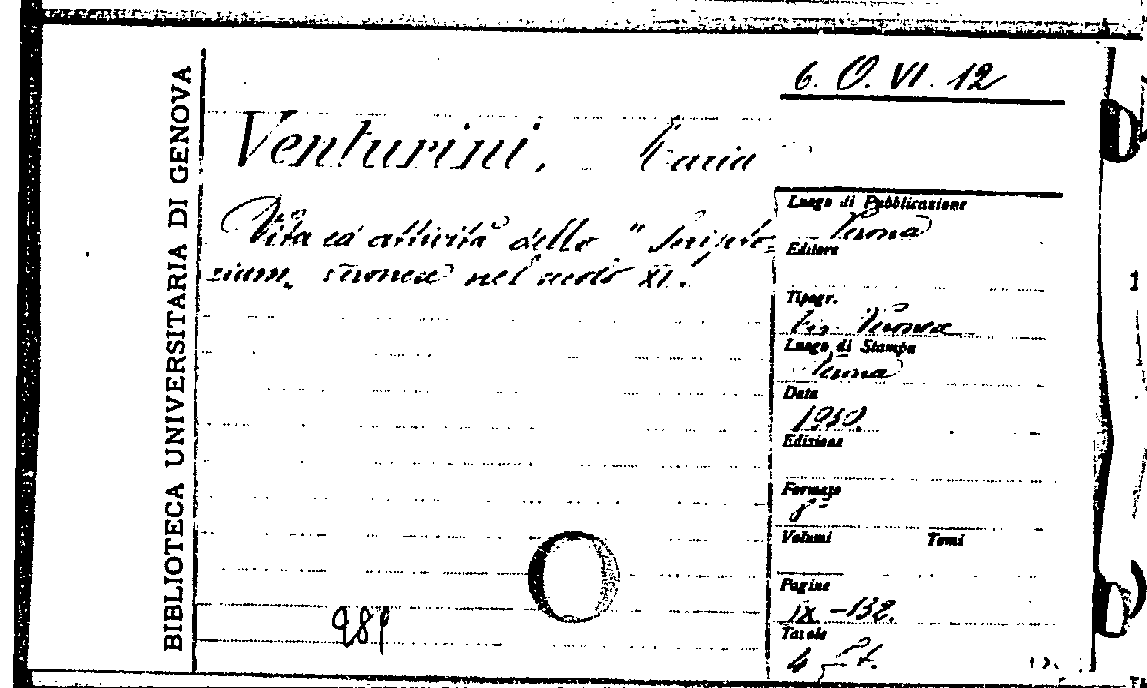 BIBLIOTECA UNIVERSITARIA DI GENOVA
6. O. VI. 12
Venturini, Maria
Vita ed attività dello "Scripto-
rium veronese nel secolo XI.
Luogo di Pubblicazione
Verona
Editore
Tipogr.
Tip. Veronese
Luogo di Stampa
Verona
Data
1930.
Edizione
Formato
8°
Volumi Tomi
Pagine
IX-132.
Tavole
4
989
1